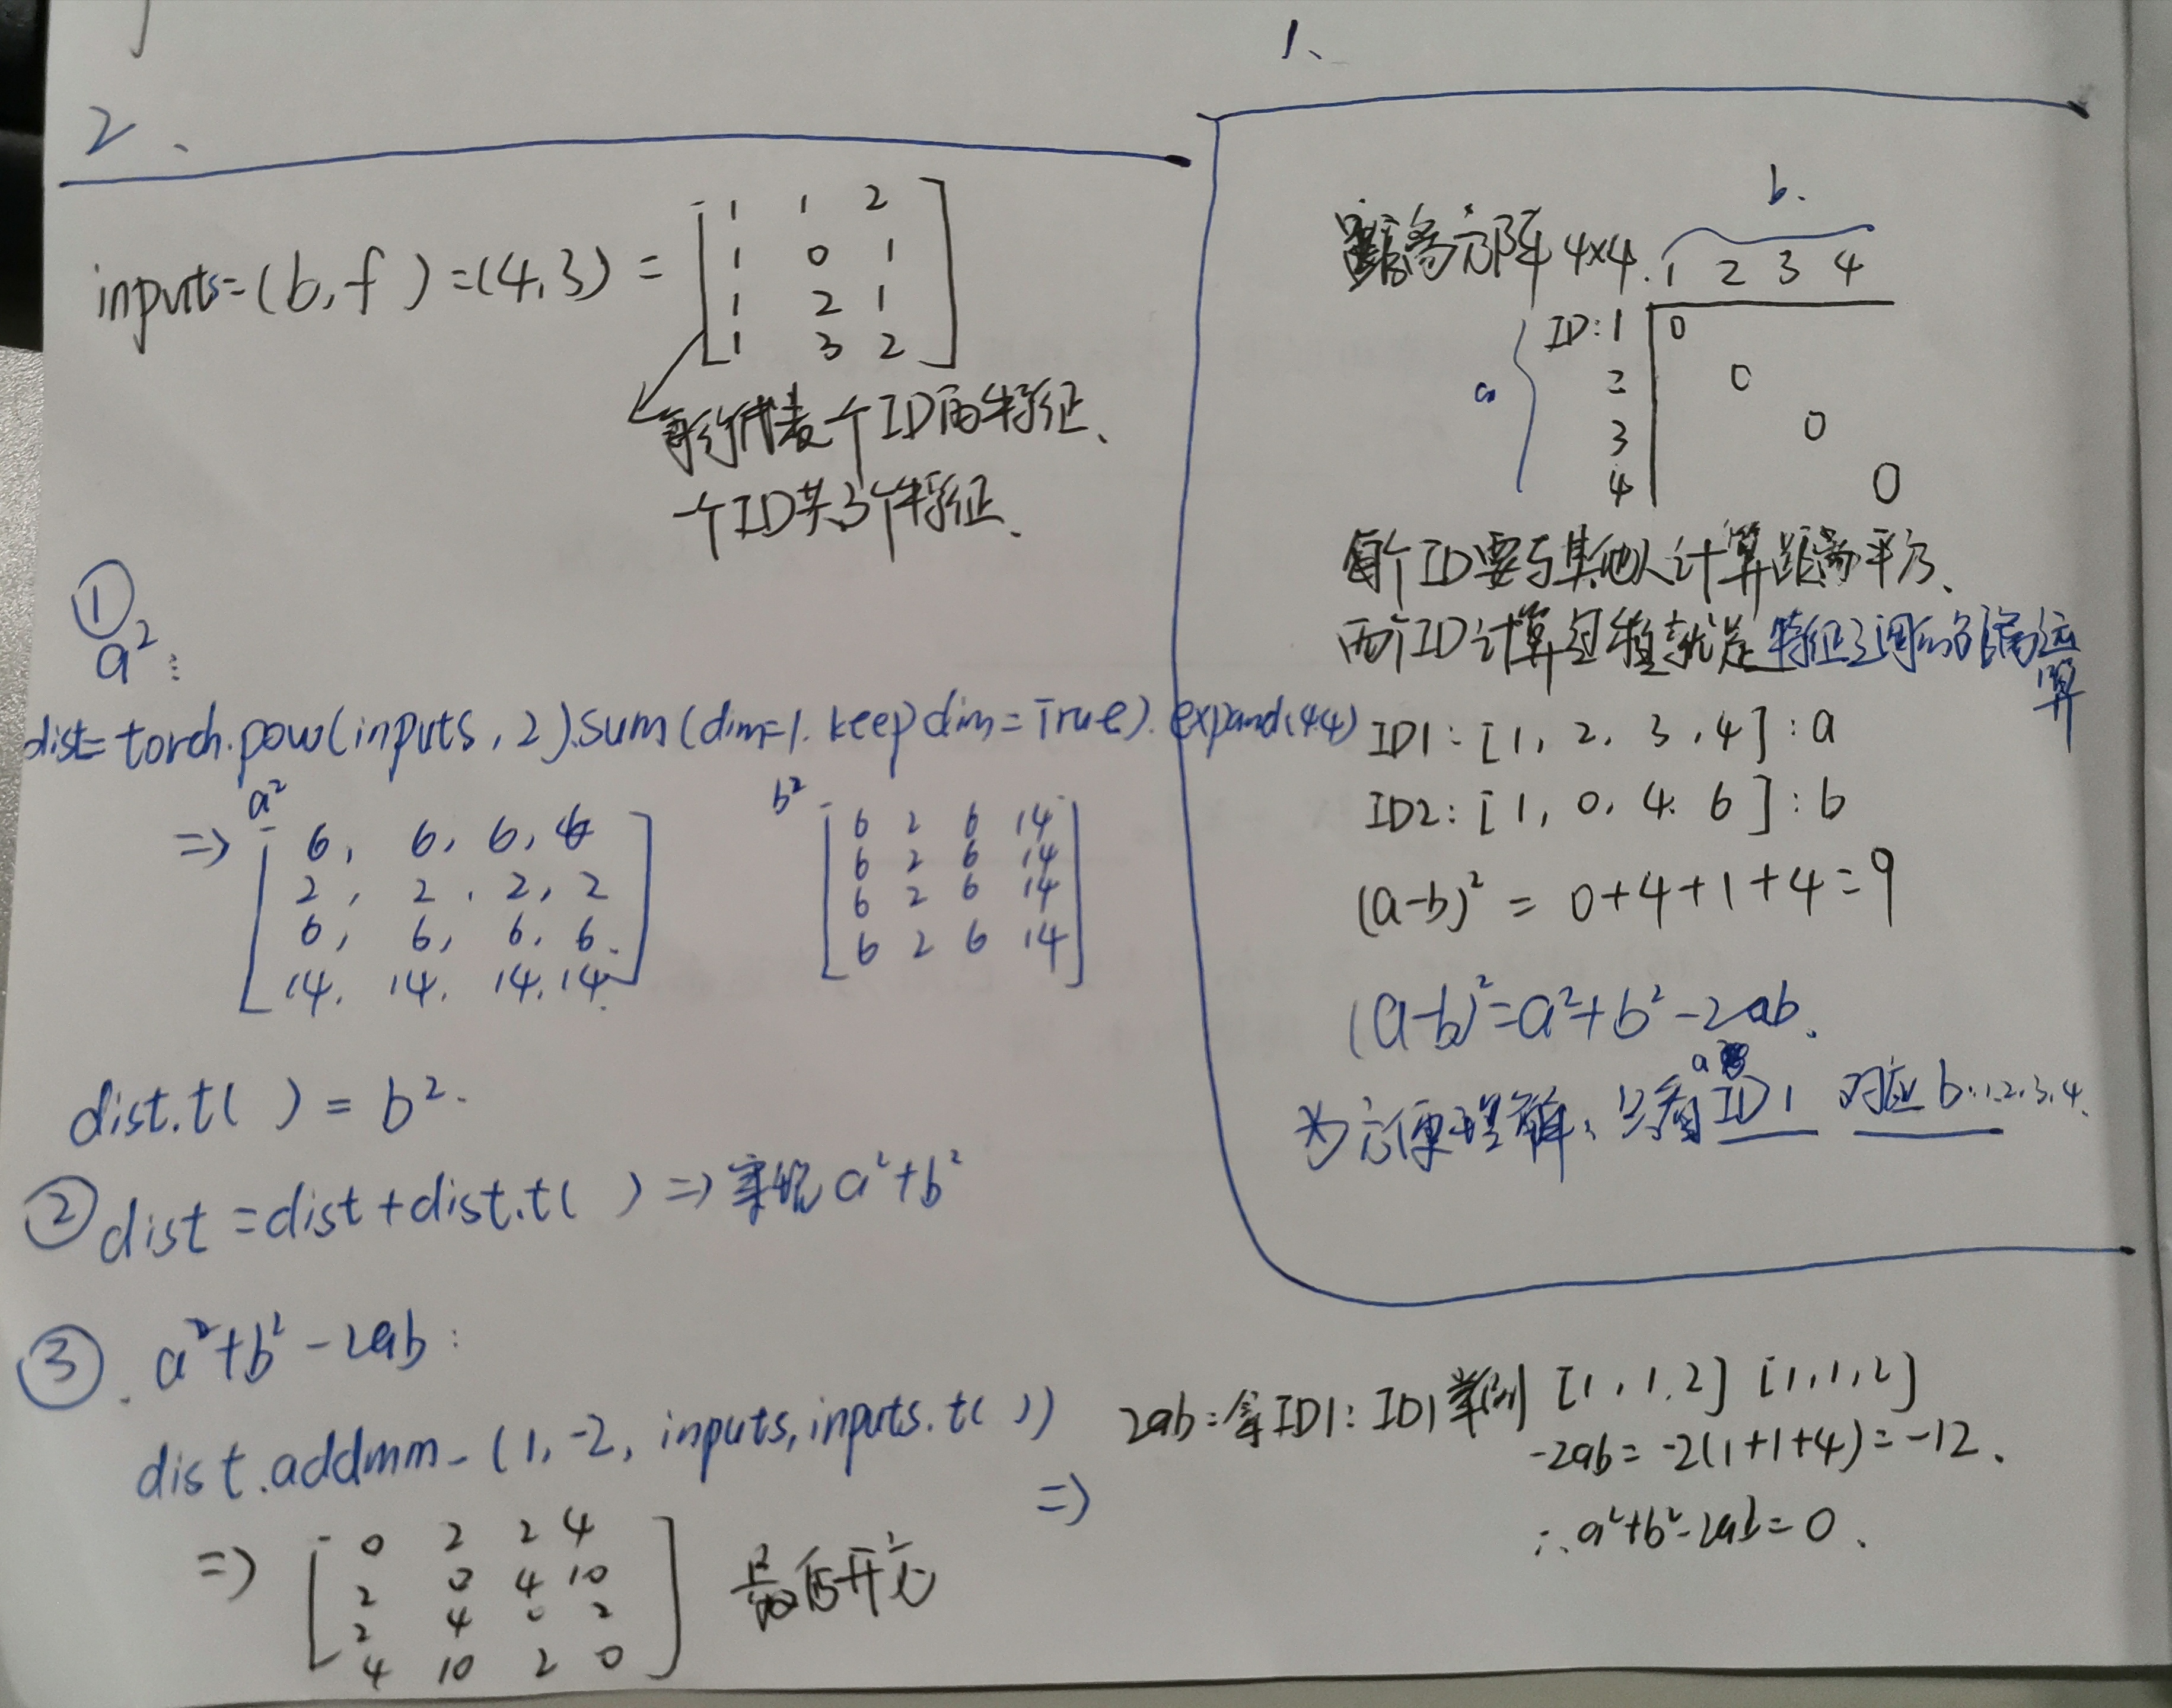 1、
距离方阵4×4.
b.
1 2 3 4
a
ID:1 0
2 0
3 0
4 0
每个ID要与其他人计算距离平方、
两个ID计算过程就是特征之间的距离运算
ID1:[1, 2, 3, 4]:a
ID2:[1, 0, 4. 6]:b
(a-b)² = 0+4+1+4=9
(a-b)²=a²+b²-2ab、
为方便理解、只看 a ID1 对应b:1.2.3.4.
2、
inputs=(b,f)=(4,3)=
1 1 2
1 0 1
1 2 1
1 3 2
每行代表一个ID的特征、
一个ID共3个特征、
①
a²:
dist=torch.pow(inputs,2).sum(dim=1.keepdim=True).expand(4.4)
a²
=> 6, 6, 6, 6
2, 2, 2, 2
6, 6, 6, 6.
14. 14. 14. 14.
b²
6 2 6 14
6 2 6 14
6 2 6 14
6 2 6 14
dist.t( ) = b².
② dist=dist+dist.t( ) => 实现a²+b²
③. a²+b²-2ab:
dist.addmm_(1,-2, inputs,inputs.t( ))
=>
2ab:拿ID1:ID1举例 [1,1,2] [1,1,2]
-2ab=-2(1+1+4)=-12.
∴a²+b²-2ab=0.
=> 0 2 2 4
2 0 4 10
2 4 0 2
4 10 2 0
最后开方